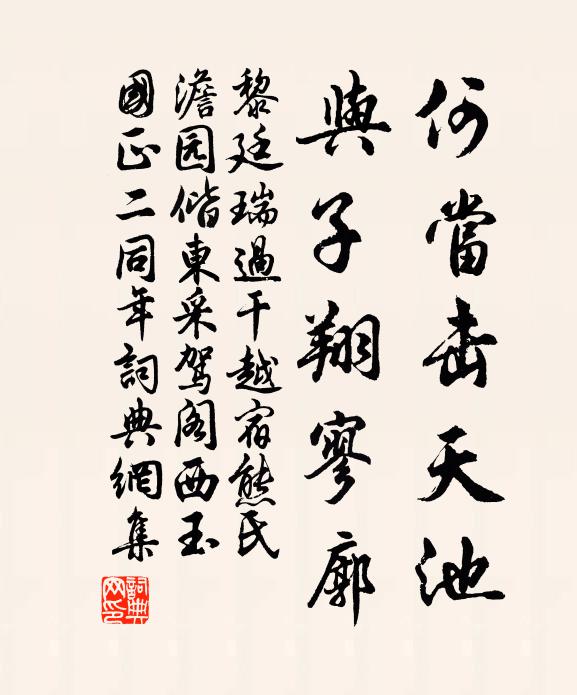 何當击天池
與子翔寥廓
黎廷瑞過干越宿熊氏
澹园偕東采驾阁西玉
國正二同年詞典網集
詞典網印